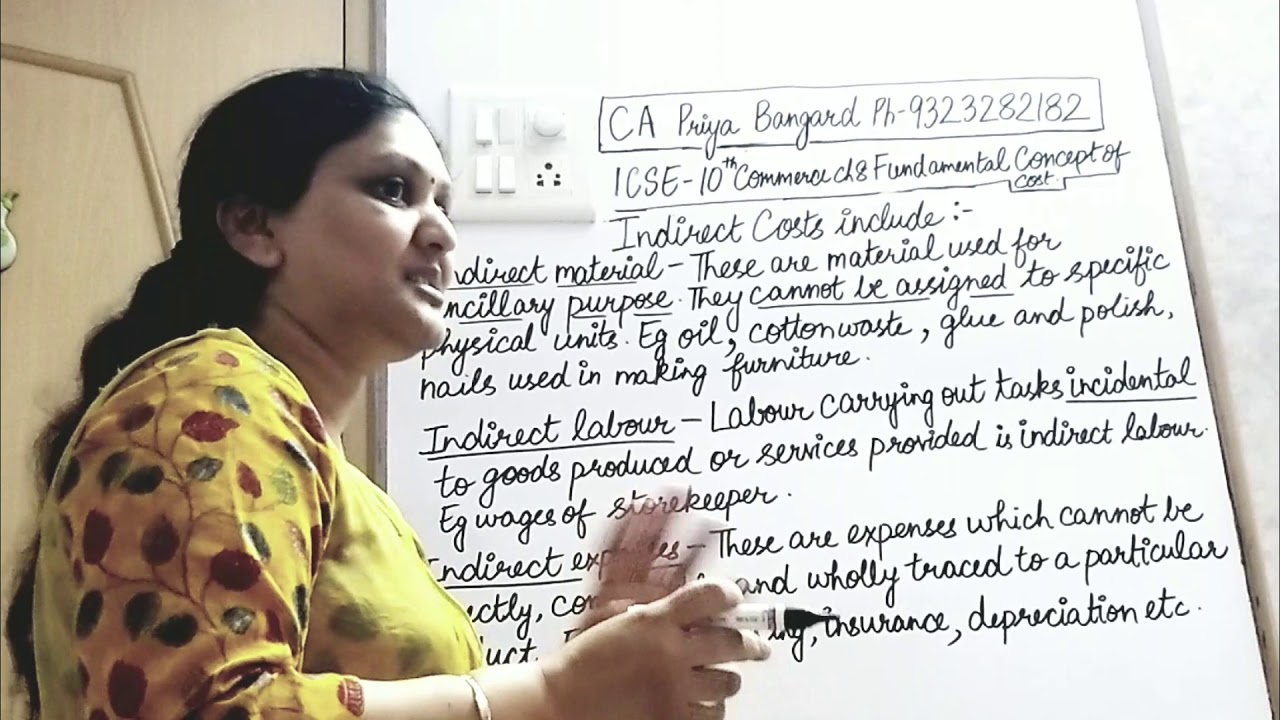 CA Priya Bangard Ph-9323282182
ICSE-10th Commerce ch8 Fundamental Concept of
Cost.
Indirect Costs include:-
ndirect material - These are material used for
ncillary purpose. They cannot be assigned to specific
physical units. Eg oil, cottonwaste, glue and polish,
nails used in making furniture.
Indirect labour - Labour carrying out tasks incidental
to goods produced or services provided is indirect labour.
Eg wages of storekeeper.
Indirect expenses - These are expenses which cannot be
and wholly traced to a particular
insurance, depreciation etc.